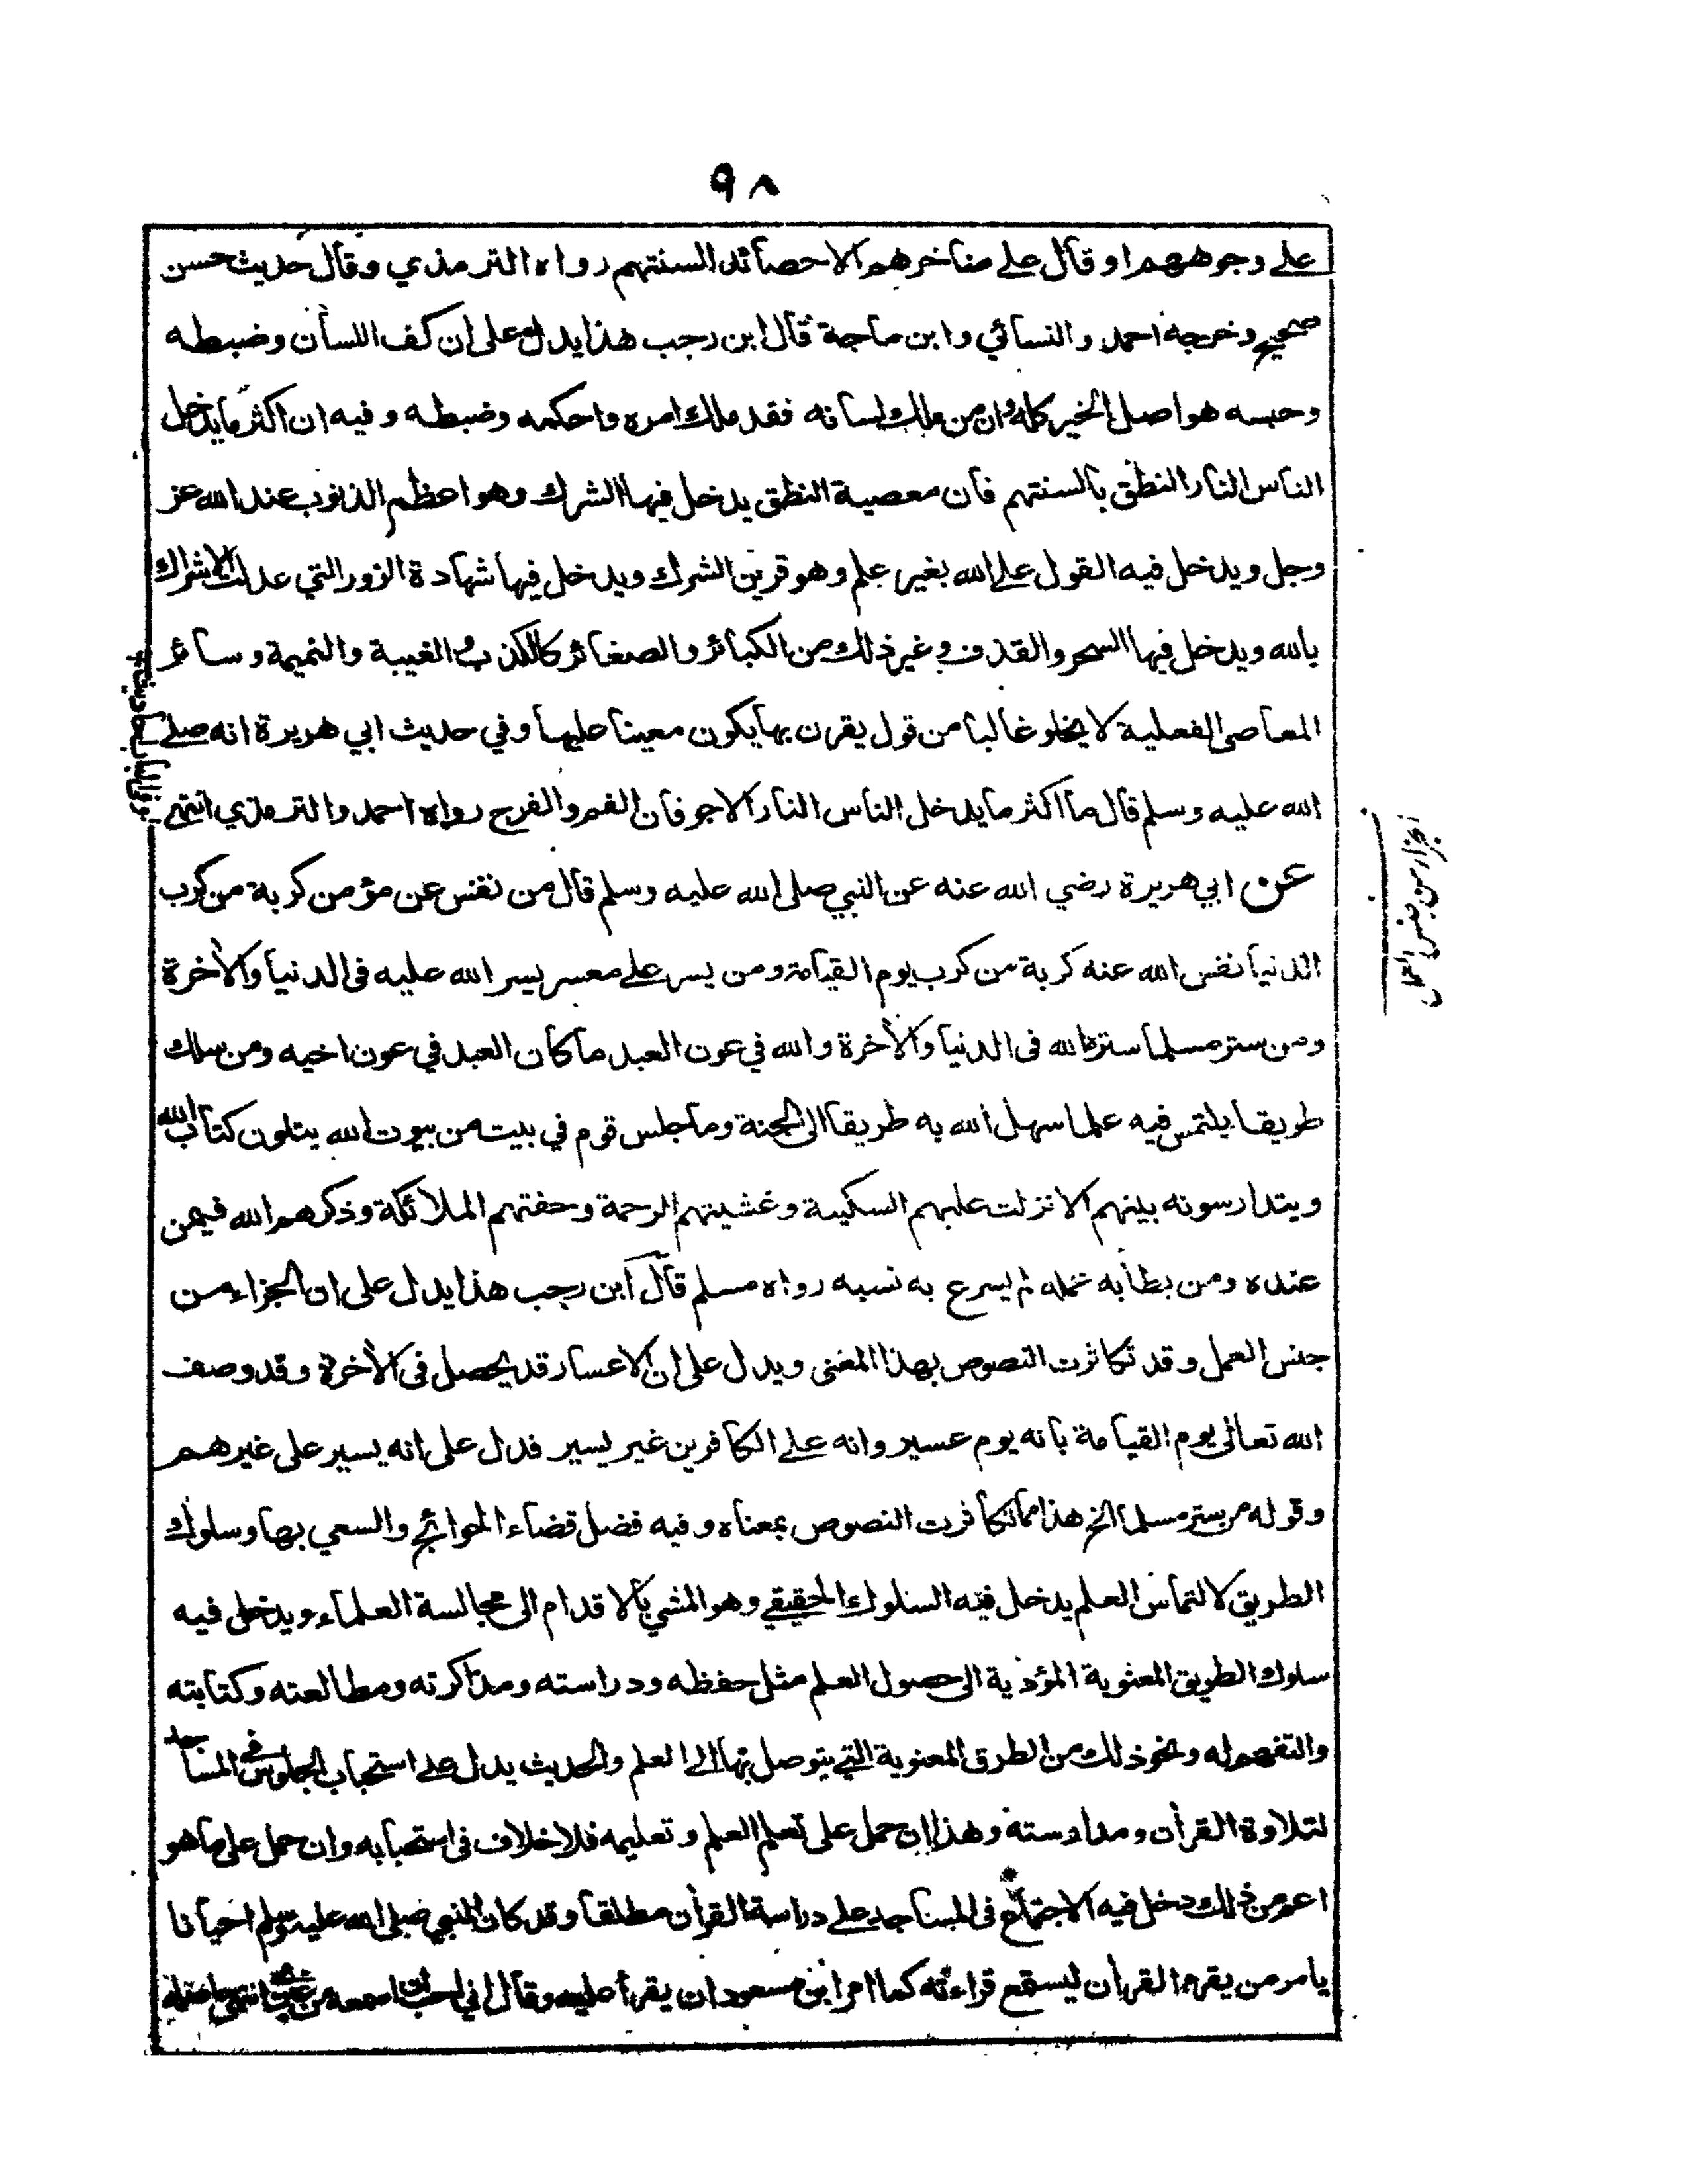 ٩٨
على وجوههم او قال على مناخرهم الا حصائد السنتهم رواه الترمذي وقال حديث حسن
صحيح وخرجه احمد والنسائي وابن ماجة قال ابن رجب هذا يدل على ان كف اللسان وضبطه
وحبسه هو اصل الخير كله وان من ملك لسانه فقد ملك امره واحكمه وضبطه وفيه ان اكثر ما يدخل
الناس النار النطق بالسنتهم فان معصية النطق يدخل فيها الشرك وهو اعظم الذنوب عند الله عز
وجل ويدخل فيه القول على الله بغير علم وهو قرين الشرك ويدخل فيها شهادة الزور التي عدلت الاشراك
بالله ويدخل فيها السحر والقذف وغير ذلك من الكبائر والصغائر كالكذب والغيبة والنميمة وسائر
المعاصي الفعلية لا يخلو غالبا من قول يقرن بها يكون معينا عليها وفي حديث ابي هريرة انه صلى
الله عليه وسلم قال ما اكثر ما يدخل الناس النار الاجوفان الفم والفرج رواه احمد والترمذي انتهى
عن ابي هريرة رضي الله عنه عن النبي صلى الله عليه وسلم قال من نفس عن مؤمن كربة من كرب
الدنيا نفس الله عنه كربة من كرب يوم القيامة ومن يسر على معسر يسر الله عليه فى الدنيا والأخرة
ومن ستر مسلما ستره الله فى الدنيا والأخرة والله في عون العبد ما كان العبد في عون اخيه ومن سلك
طريقا يلتمس فيه علما سهل الله به طريقا الى الجنة وما جلس قوم في بيت من بيوت الله يتلون كتاب الله
ويتدارسونه بينهم الا نزلت عليهم السكينة وغشيتهم الرحمة وحفتهم الملائكة وذكرهم الله فيمن
عنده ومن بطأ به عمله لم يسرع به نسبه رواه مسلم قال ابن رجب هذا يدل على ان الجزاء من
جنس العمل وقد تكاثرت النصوص بهذا المعنى ويدل على ان الاعسار قد يحصل فى الأخرة وقد وصف
الله تعالى يوم القيامة بانه يوم عسير وانه على الكافرين غير يسير فدل على انه يسير على غيرهم
وقوله من ستر مسلما الخ هذا مما تكاثرت النصوص بمعناه وفيه فضل قضاء الحوائج والسعي بها وسلوك
الطريق لالتماس العلم يدخل فيه السلوك الحقيقي وهو المشي بالاقدام الى مجالسة العلماء ويدخل فيه
سلوك الطريق المعنوية المؤدية الى حصول العلم مثل حفظه ودراسته ومذاكرته ومطالعته وكتابته
والتفهم له ونحو ذلك من الطرق المعنوية التي يتوصل بها الى العلم والحديث يدل على استحباب الجلوس في المساجد
لتلاوة القرأن ومدارسته وهذا ان حمل على تعلم العلم وتعليمه فلا خلاف فى استحبابه وان حمل على ما هو
اعم من ذلك دخل فيه الاجتماع فى المساجد على دراسة القرأن مطلقا وقد كان النبي صلى الله عليه وسلم احيانا
يامر من يقرء القرأن ليستمع قراءته كما امر ابن مسعود ان يقرأ عليه وقال اني احب ان اسمعه من غيري انتهى
الجزاء من جنس العمل